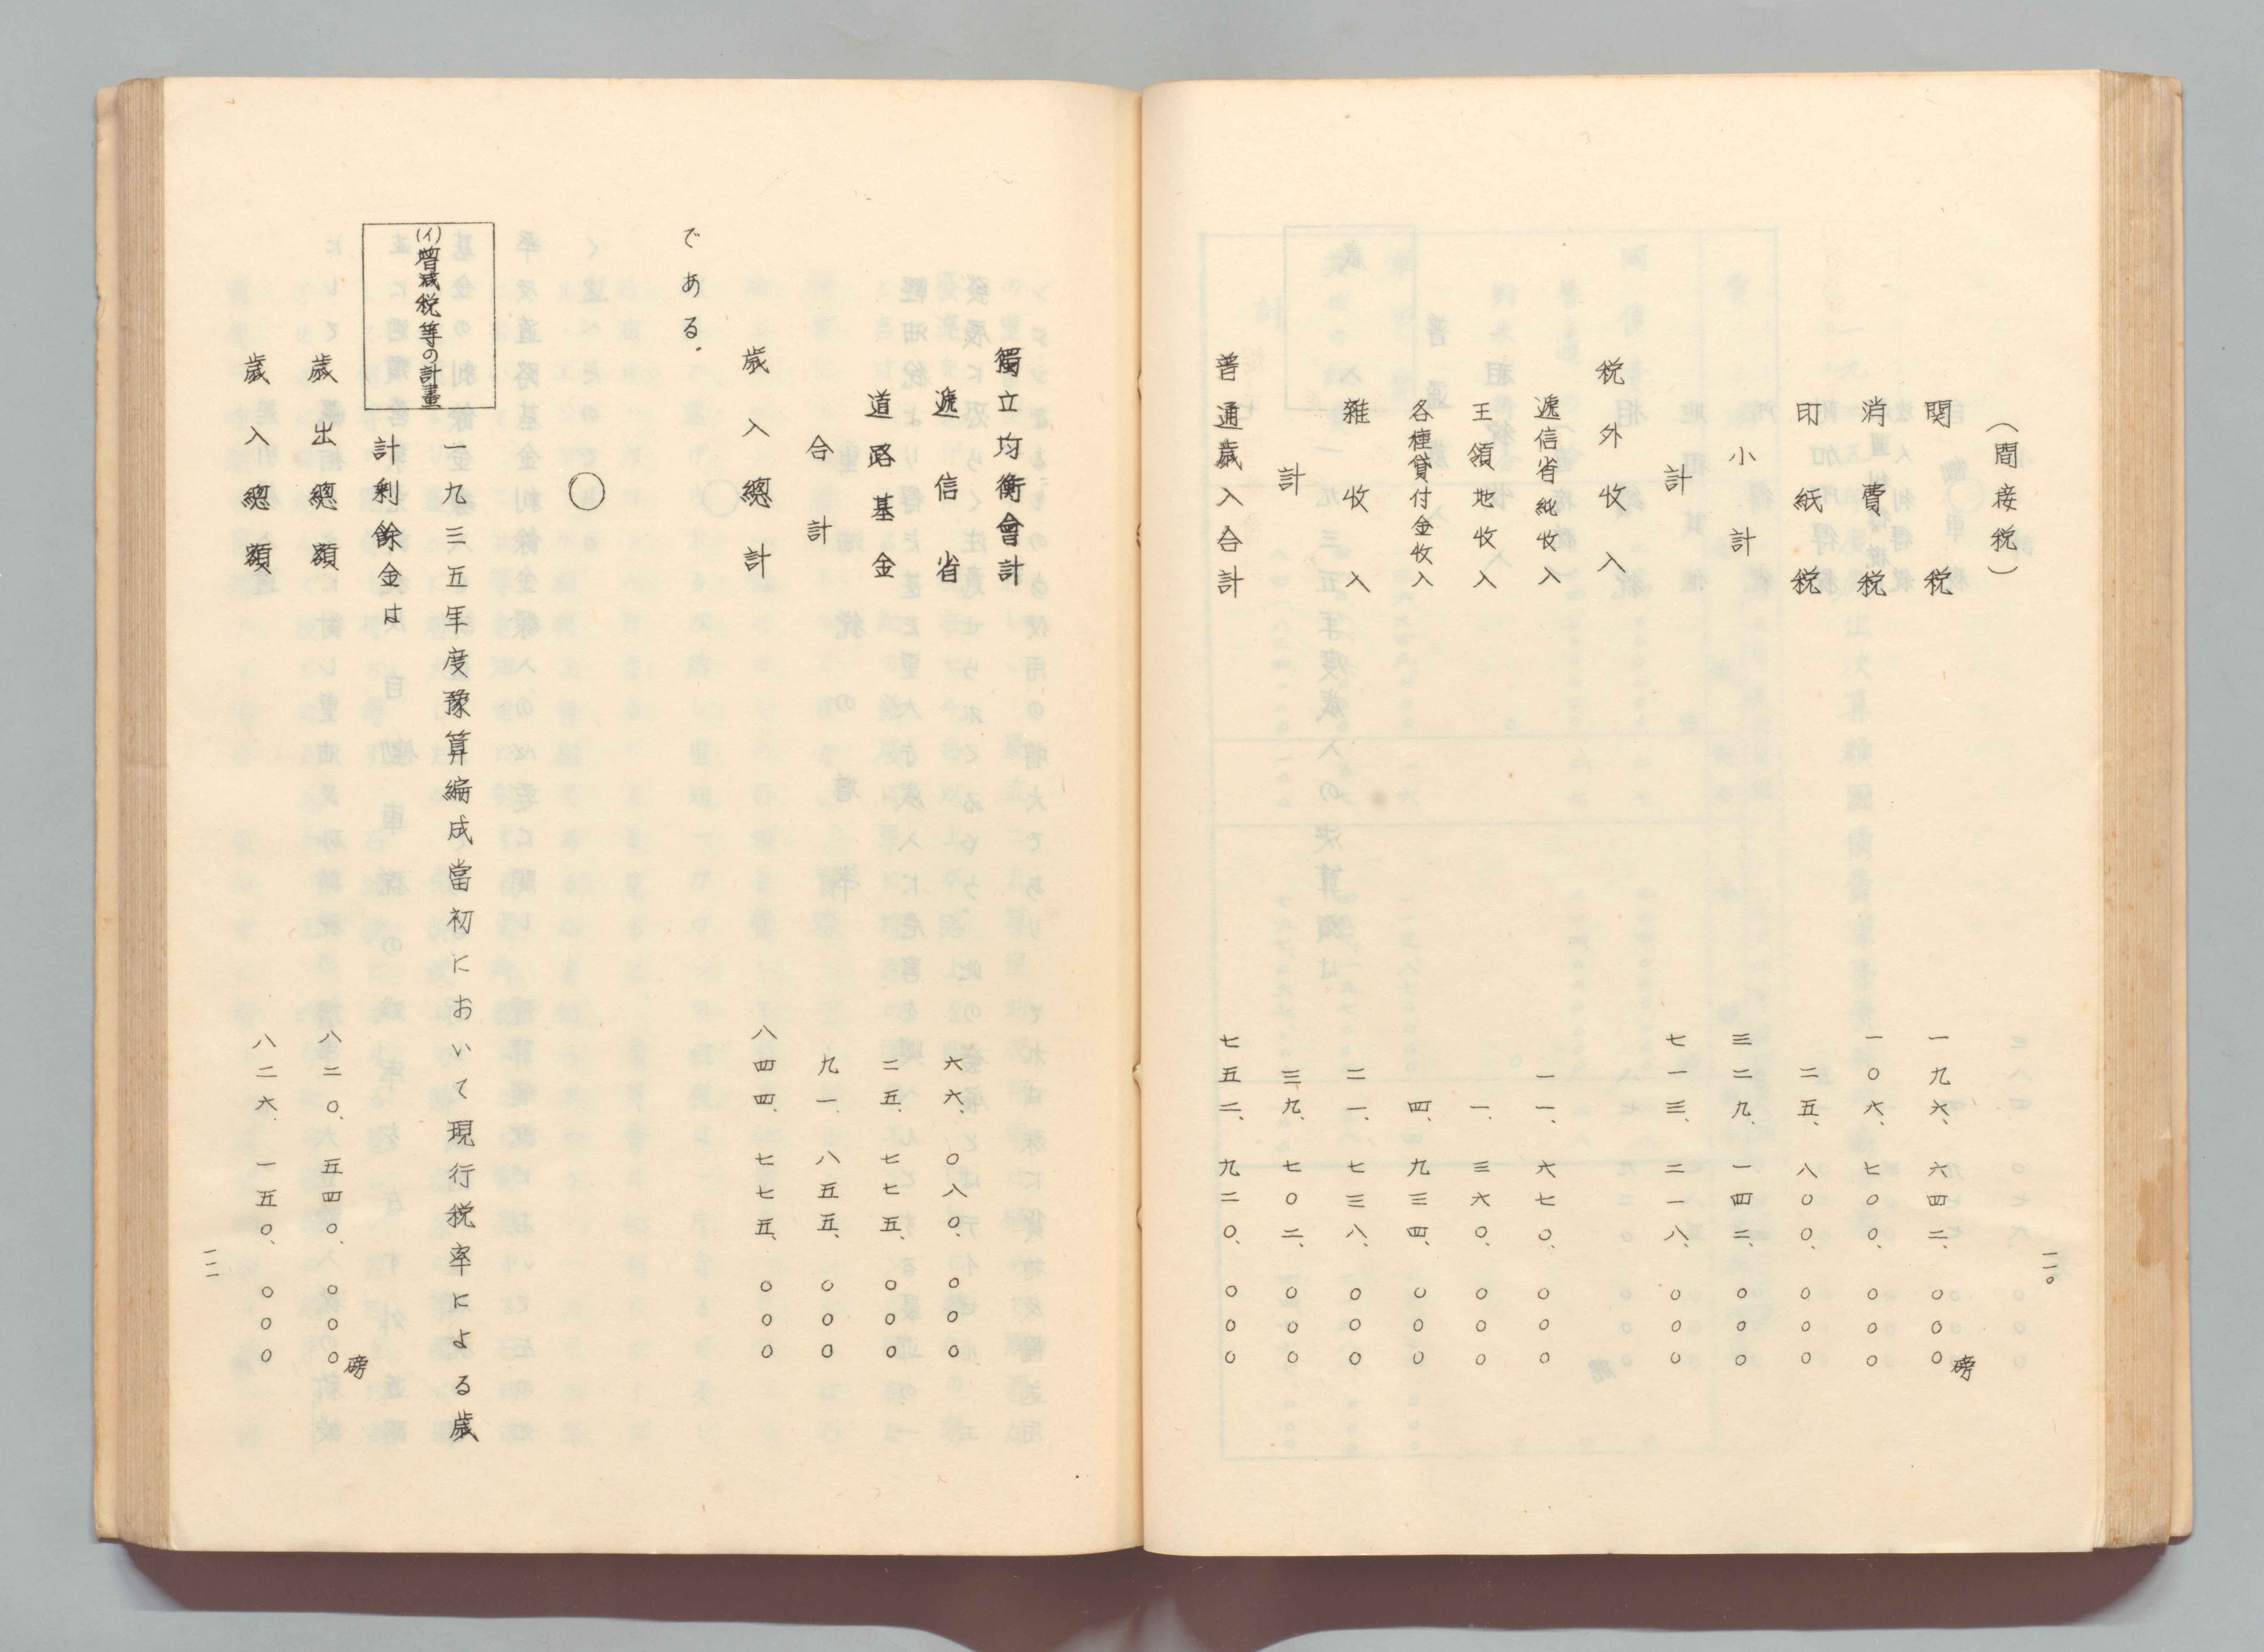 (間接税)
関税 一九六、六四二、〇〇〇磅
消費税 一〇六、七〇〇、〇〇〇
印紙税 二五、八〇〇、〇〇〇
小計 三二九、一四二、〇〇〇
計 七一三、二一八、〇〇〇
税外收入
遞信省純收入 一一、六七〇、〇〇〇
王領地收入 一、三六〇、〇〇〇
各種貸付金收入 四、九三四、〇〇〇
雜收入 二一、七三八、〇〇〇
計 三九、七〇二、〇〇〇
普通歳入合計 七五二、九二〇、〇〇〇
一一〇
獨立均衡會計
遞信省 六六、〇八〇、〇〇〇
道路基金 二五、七七五、〇〇〇
合計 九一、八五五、〇〇〇
歳入總計 八四四、七七五、〇〇〇
である.
○
(イ)增減税等の計畫
一九三五年度豫算編成當初において現行税率による歳
計剩餘金は
歳出總額 八二〇、五四〇、〇〇〇磅
歳入總額 八二六、一五〇、〇〇〇
一一一